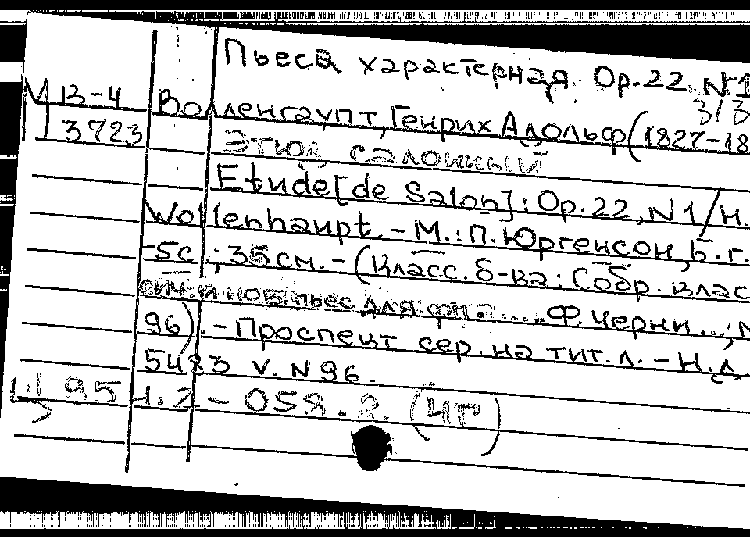 Пьеса характерная. Op.22. N1
3/3
М 13-4 Волленгаупт, Генрих Адольф (1827-18
3723 Этюд салонный
Etude [de Salon]: Op.22, N1 / H.
Wollenhaupt. - М.: П. Юргенсон, Б.г.
-5с.; 35см. - (Класс. б-ка: Собр. клас
и нов. пьес для фп. .... Ф. Черни...;
96). - Проспект сер. на тит. л. - Н.д.
5483 V. N96.
Ц 954.2-058.2. (ЧГ)